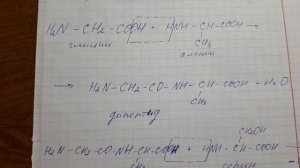 H₂N – CH₂ – COOH + HNH – CH – COOH →
глицин CH₃ аланин
→ H₂N – CH₂ – CO – NH – CH – COOH + H₂O
CH₃
дипептид
CH₂OH
H₂N – CH₂ – CO – NH – CH – COOH + HNH – CH – COOH
CH₃ серин